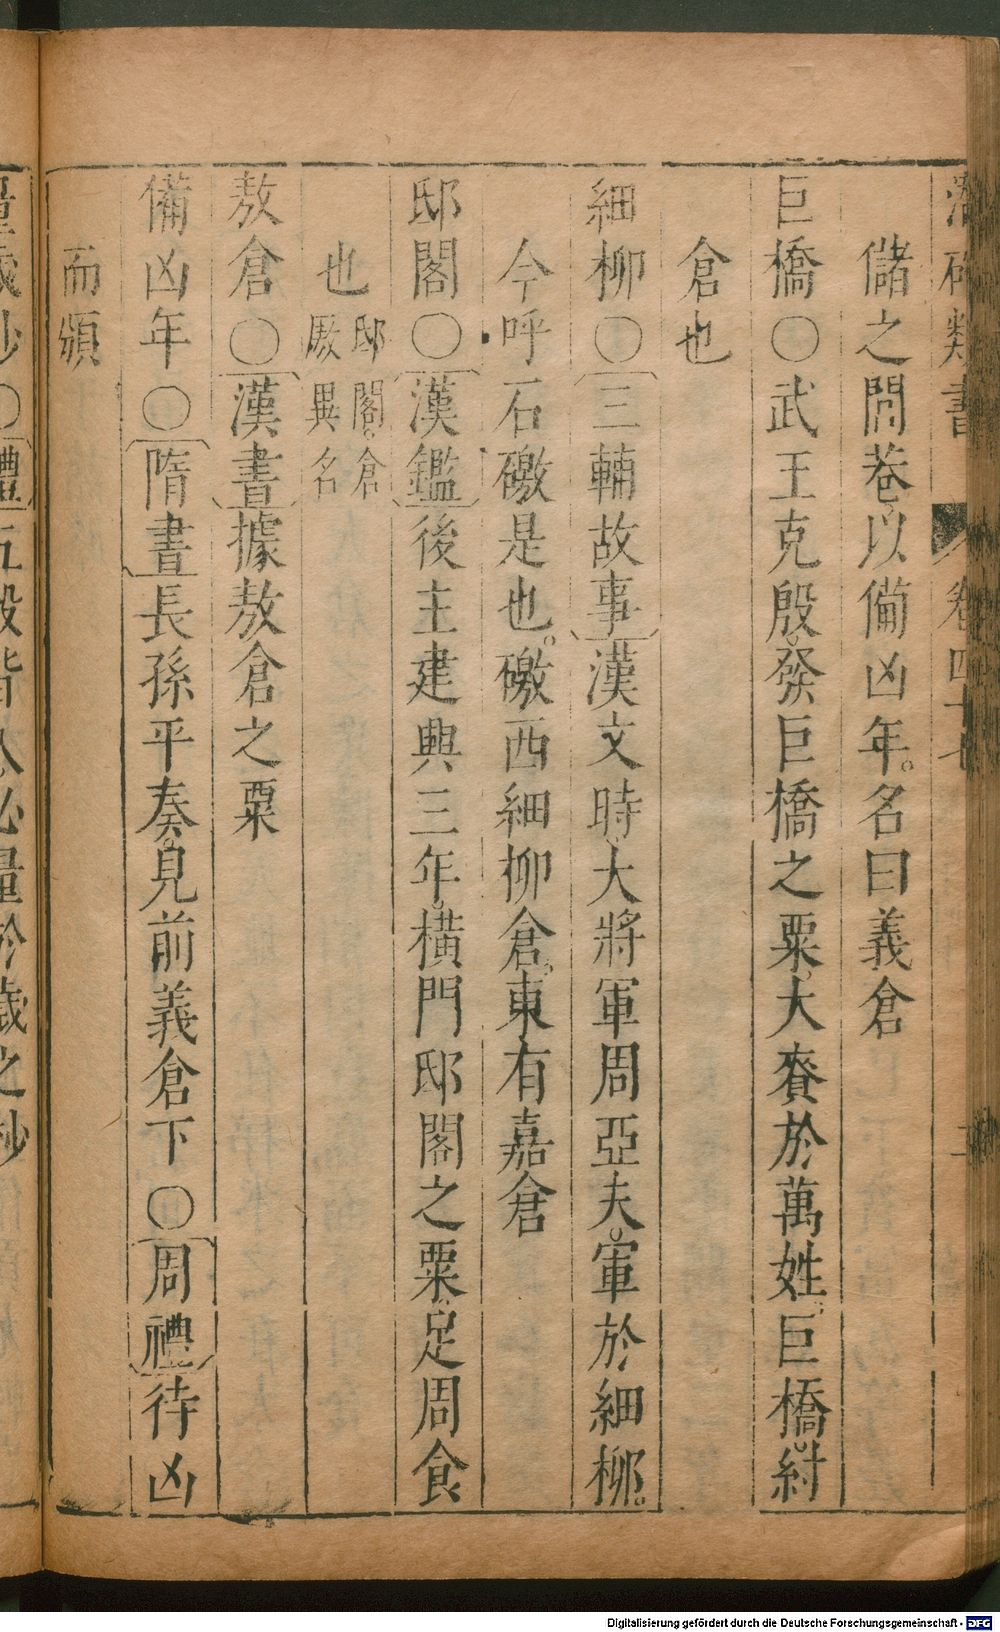 儲之閭巷以備凶年。名曰義倉
巨橋〇武王克殷。發巨橋之粟。大賚於萬姓。巨橋。紂
倉也
細柳〇三輔故事漢文時。大將軍周亞夫。軍於細柳。
今呼石礉是也。礉西細柳倉。東有嘉倉
邸閣〇漢鑑後主建興三年。橫門邸閣之粟。足周食
也邸閣。倉厫異名
敖倉〇漢書據敖倉之粟
備凶年〇隋書長孫平奏。見前義倉下〇周禮待凶
而頒
Digitalisierung gefördert durch die Deutsche Forschungsgemeinschaft - DFG